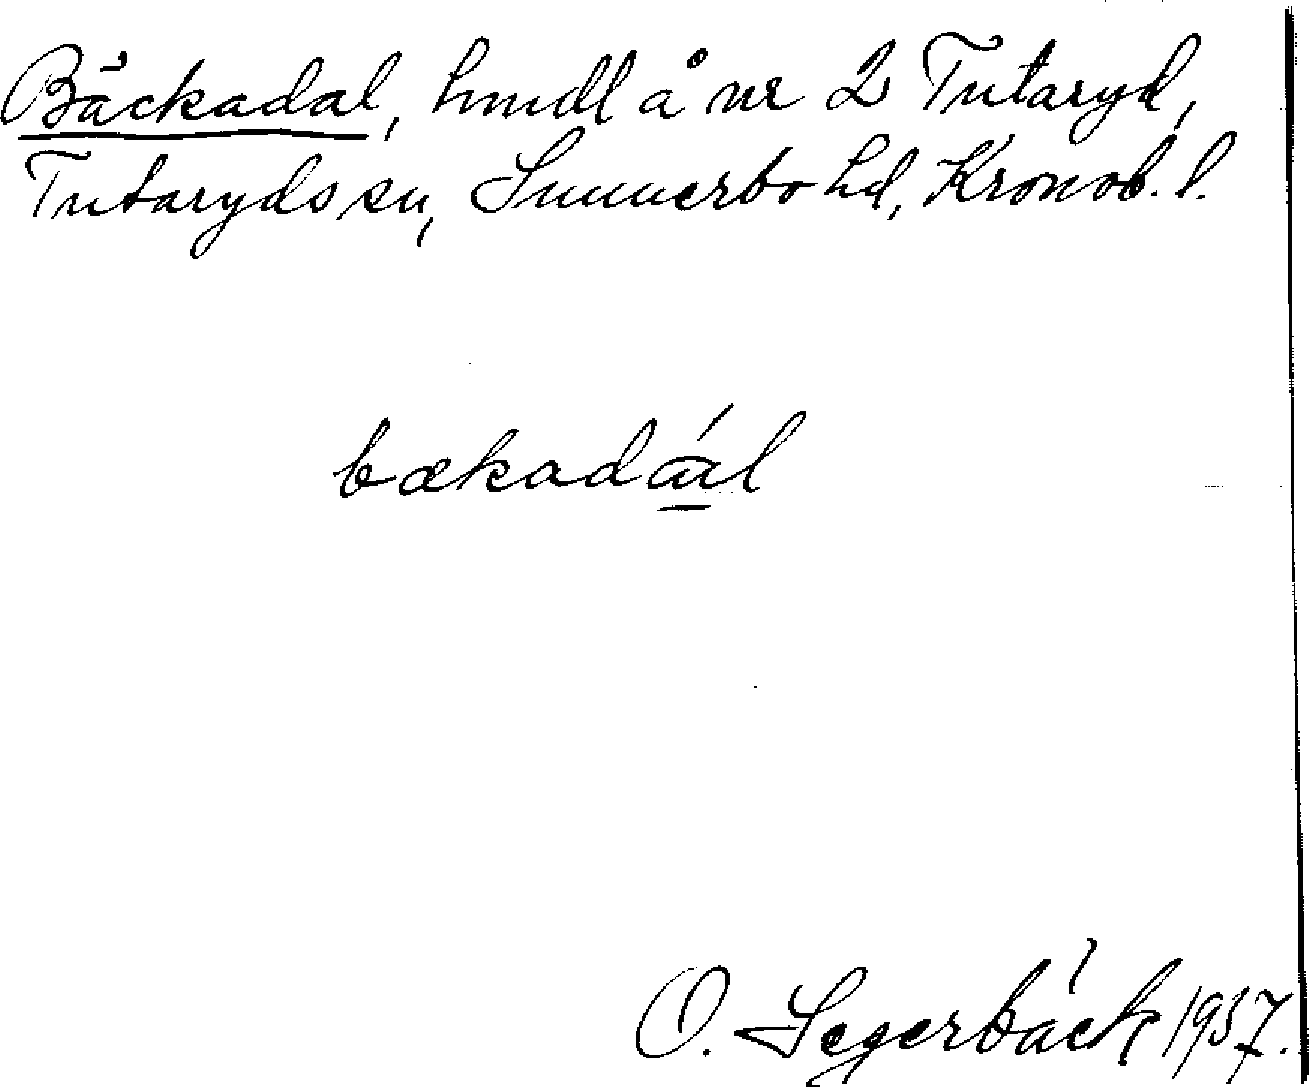 Bäckadal, hmdl å nr 2 Tutaryd,
Tutaryds sn, Sunnerbo hd, Kronob. l.
bækadál
O. Segerbäck 1937.